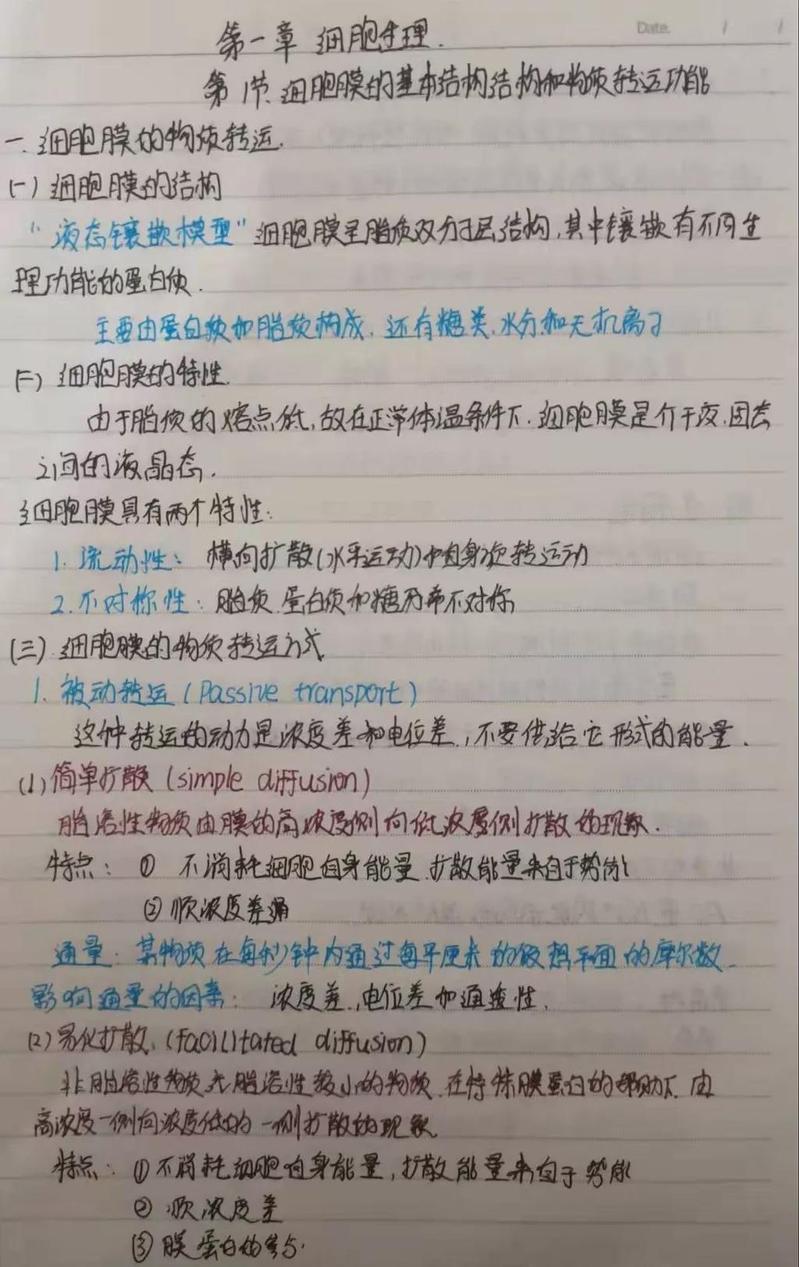 Date.    /    /
第一章 细胞生理.
第1节.细胞膜的基本结构结构和物质转运功能
一.细胞膜的物质转运.
(一)细胞膜的结构
"液态镶嵌模型"细胞膜呈脂质双分子层结构,其中镶嵌有不同生
理功能的蛋白质.
主要由蛋白质和脂质构成.还有糖类.水分和无机离子
(二)细胞膜的特性.
由于脂质的熔点低,故在正常体温条件下.细胞膜是介于液.固态
之间的液晶态.
细胞膜具有两个特性:
1.流动性: 横向扩散(水平运动)和自身旋转运动
2.不对称性: 脂质.蛋白质和糖分布不对称
(三).细胞膜的物质转运方式.
1.被动转运(Passive transport)
这种转运的动力是浓度差和电位差,不要供给它形式的能量.
(1)简单扩散(simple diffusion)
脂溶性物质由膜的高浓度侧向低浓度侧扩散的现象.
特点: ① 不消耗细胞自身能量.扩散能量来自于势能
② 顺浓度差
通量:某物质在每秒钟内通过每平厘米的假想平面的摩尔数.
影响通量的因素: 浓度差.电位差和通透性.
(2)易化扩散.(facilitated diffusion)
非脂溶性物质 脂溶性较小的物质.在特殊膜蛋白的帮助下.由
高浓度一侧向浓度低的一侧扩散的现象.
特点: ①不消耗细胞自身能量,扩散能量来自于势能
② 顺浓度差
③ 膜蛋白的参与.